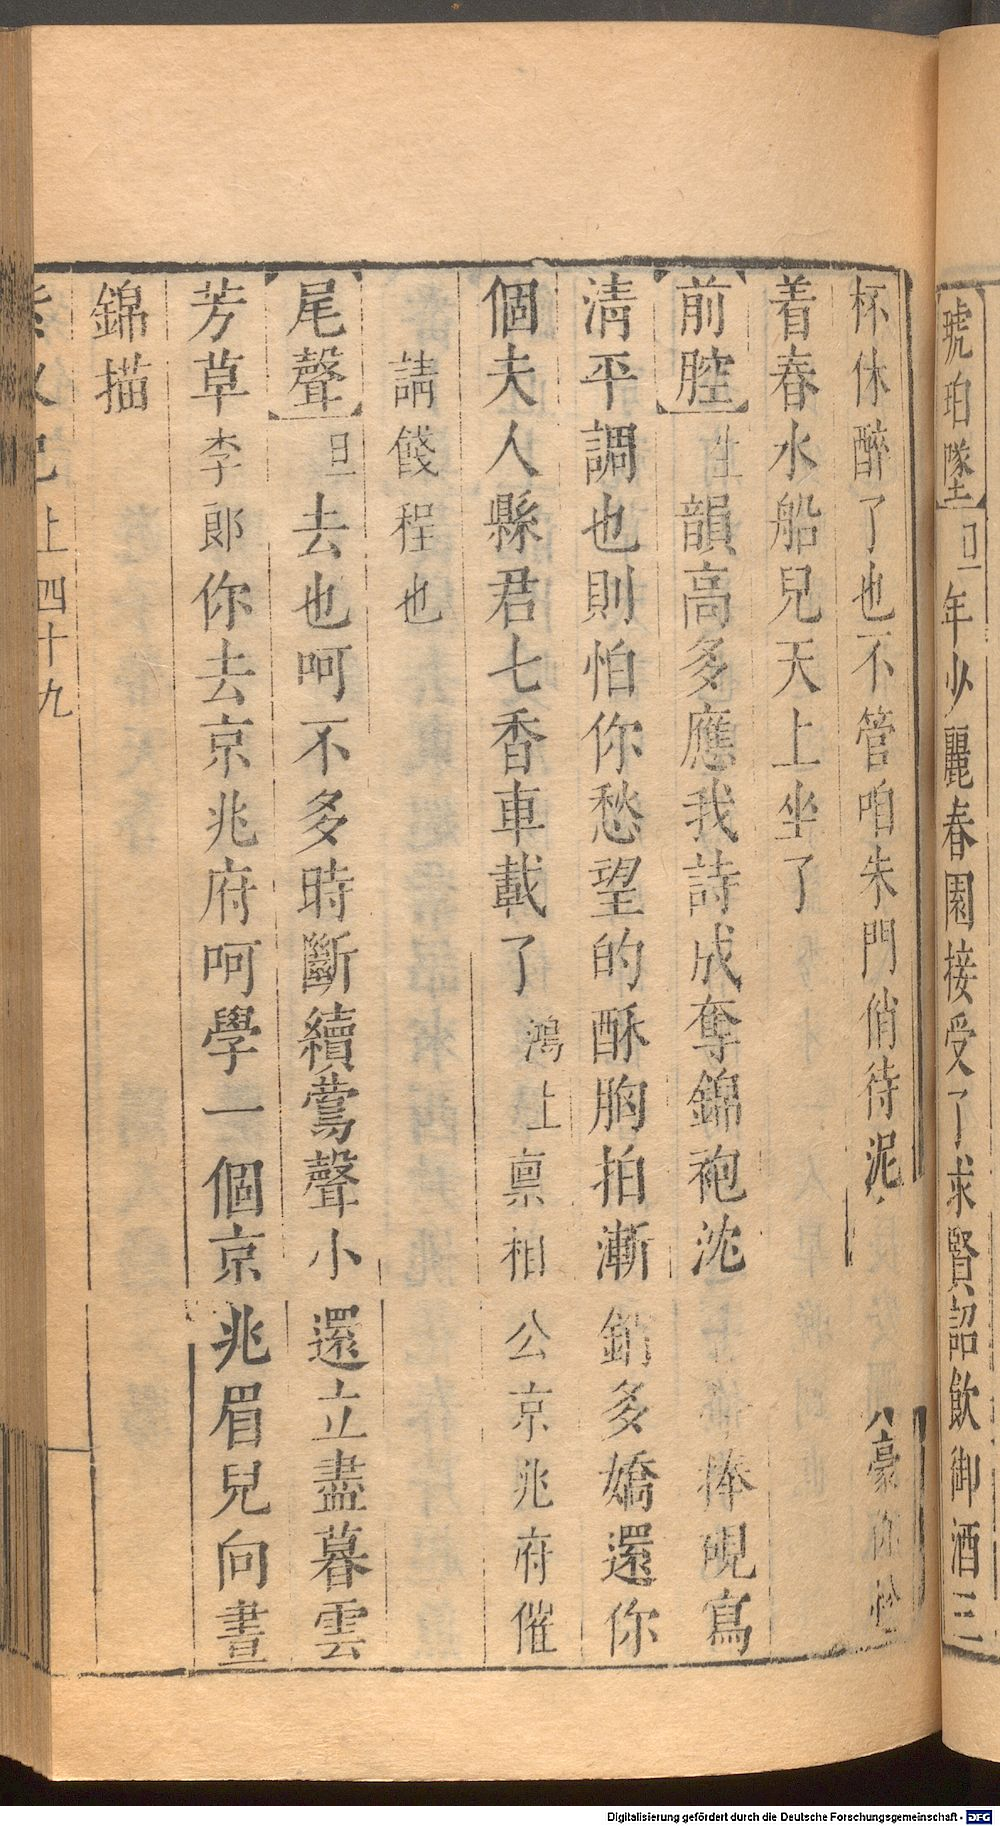 琥珀墜 旦 年少麗春園接受了求賢詔飲御酒三
杯休醉了也不管咱朱門俏待泥
着春水船兒天上坐了
前腔 生 韻高多應我詩成奪錦袍沈 捧硯寫
清平調也則怕你愁望的酥胸拍漸銷多嬌還你
個夫人縣君七香車載了 鴻上稟相公京兆府催
請餞程也
尾聲 旦 去也呵不多時斷續鶯聲小還立盡暮雲
芳草李郎你去京兆府呵學一個京兆眉兒向晝
錦描
上 四十九
Digitalisierung gefördert durch die Deutsche Forschungsgemeinschaft - DFG